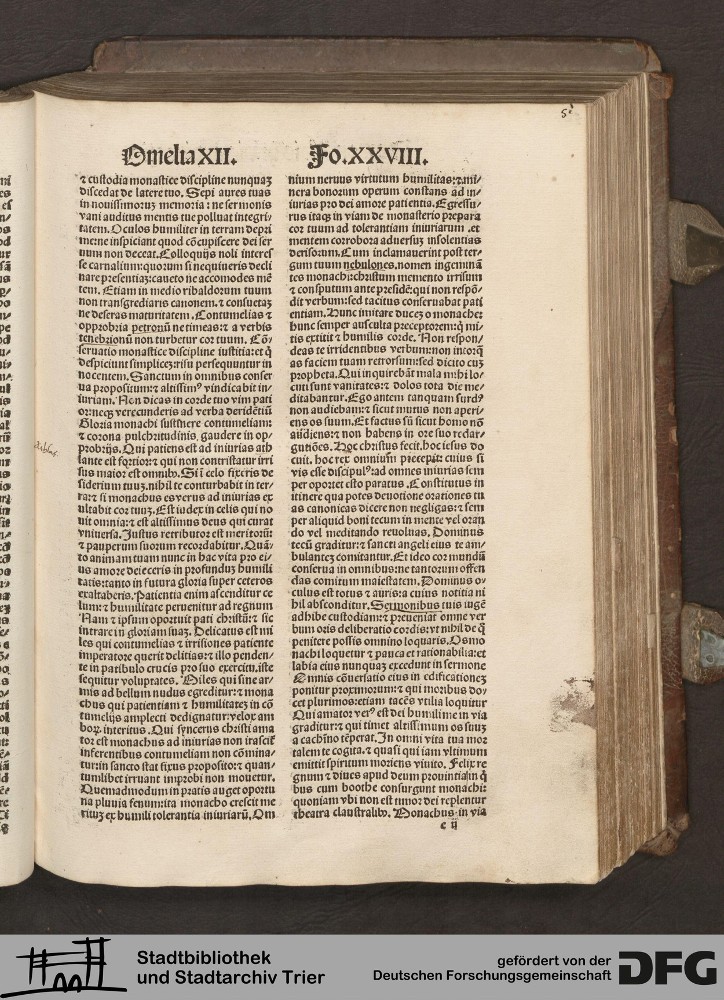 Omelia XII.
Fo. XXVIII.
⁊ custodia monastice discipline nunquaꝫ
discedat de latere tuo. Sepi aures tuas
in nouissimoruꝫ memoria: ne sermonis
vani auditus mentis tue polluat integri-
tatem. Oculos humiliter in terram depri
me: ne inspiciant quod cōcupiscere dei ser
uum non deceat. Colloquijs noli interes
se carnalium: quorum si nequiueris decli
nare presentiaꝫ: caueto ne accomodes mē
tem. Etiam in medio ribaldorum tuum
non transgrediaris canonem. ⁊ consuetaꝫ
ne deseras maturitatem. Contumelias ⁊
opprobria petronū ne timeas: ⁊ a verbis
tenebrionū non turbetur cor tuum. Cō-
seruatio monastice discipline iustitia: et q̄
despiciunt simplices: risu persequuntur in
nocentem. Sanctum in omnibus conser
ua propositum: ⁊ altissimꝰ vindicabit in-
iuriam. Non dicas in corde tuo vim pati
or: neqꝫ verecunderis ad verba deridētiū
Gloria monachi sustinere contumeliam:
⁊ corona pulchritudinis, gaudere in op-
probrijs. Qui patiens est ad iniurias ath
lante est fortior: ⁊ qui non contristatur irri
sus maior est omnibꝰ. Si ī celo fixeris de
siderium tuuꝫ. nihil te conturbabit in ter-
ra: ⁊ si monachus es verus ad iniurias ex
ultabit cor tuuꝫ. Est iudex in celis qui no
uit omnia: ⁊ est altissimus deus qui curat
vniuersa. Justus retributor est meritorū:
⁊ pauperum suorum recordabitur. Quā-
to animam tuam nunc in hac vita pro ei-
us amore deieceris in profunduꝫ humili
tatis: tanto in futura gloria super ceteros
exaltaberis. Patientia enim ascenditur ce
lum: ⁊ humilitate peruenitur ad regnum
Nam ⁊ ipsum oportuit pati christū: ⁊ sic
intrare in gloriam suaꝫ. Delicatus est mi
les qui contumelias ⁊ irrisiones patiente
imperatore querit delitias: ⁊ illo penden-
te in patibulo crucis pro suo exercitu. iste
sequitur voluptates. Miles qui sine ar-
mis ad bellum nudus egreditur: ⁊ mona
chus qui patientiam ⁊ humilitateꝫ in cō
tumelijs amplecti dedignatur: velox am
boꝝ interitus. Qui syncerus christi ama
tor est monachus ad iniurias non irascit̄
inferentibus contumeliam non cōmina-
tur: in sancto stat fixus proposito: ⁊ quan-
tumlibet irruant improbi non mouetur.
Quemadmodum in pratis auget oportu
na pluuia fenum: ita monacho crescit me
rituꝫ ex humili tolerantia iniuriarū. Om
nium neruus virtutum humilitas: ⁊ ani-
nera bonorum operum constans ad in-
iurias pro dei amore patientia. Egressu-
rus itaqꝫ in viam de monasterio prepara
cor tuum ad tolerantiam iniuriarum. et
mentem corrobora aduersus insolentias
derisorum. Cum inclamauerint post ter-
gum tuum nebulones. nomen ingeminā
tes monachi: christum memento irrisum
⁊ consputum ante presidē: qui non respō-
dit verbum: sed tacitus conseruabat pati
entiam. Hunc imitare duceꝫ o monache:
hunc semper ausculta preceptorem: q̄ mi-
tis extitit ⁊ humilis corde. Non respon-
deas te irridentibus verbum: non intorq̄
as faciem tuam retrorsum: sed dicito cuꝫ
propheta. Qui inquirebāt mala mihi lo-
cuti sunt vanitates: ⁊ dolos tota die me-
ditabantur. Ego autem tanquam surdꝰ
non audiebam: ⁊ sicut mutus non aperi-
ens os suum. Et factus sū sicut homo nō
audiens: ⁊ non habens in ore suo redar-
gutiōes. Hoc christus fecit. hoc iesus do
cuit. hoc rex omnium precepit: cuius si
vis esse discipulꝰ: ad omnes iniurias sem
per oportet esto paratus. Constitutus in
itinere qua potes deuotione orationes tu
as canonicas dicere non negligas: ⁊ sem
per aliquid boni tecum in mente vel oran
do vel meditando reuoluas. Dominus
tecū graditur: ⁊ sancti angeli eius te am-
bulanteꝫ comitantur. Et ideo cor mundū
conserua in omnibus: ne tantorum offen
das comitum maiestatem. Dominus o-
culus est totus ⁊ auris: a cuius notitia ni
hil absconditur. Sermonibus tuis iugē
adhibe custodiam: ⁊ preueniat omne ver
bum oris deliberatio cordis: vt nihil de q̄
penitere possis omnino loquaris. Os mo
nachi loquetur ⁊ pauca et rationabilia: et
labia eius nunquaꝫ excedunt in sermone
Omnis cōuersatio eius in edificationeꝫ
ponitur proximorum: ⁊ qui moribus do-
cet plurimos: etiam tacēs vtilia loquitur
Qui amator verꝰ est dei humilime in via
graditur: ⁊ qui timet altissimum os suuꝫ
a cachīno tēperat. In omni vita tua mor
talem te cogita. ⁊ quasi qui iam vltimum
emittit spiritum moriens viuito. Felix re
gnum ⁊ diues apud deum prouintia: in q̄
bus cum boothe consurgunt monachi:
quoniam vbi non est timor dei replentur
theatra claustralibꝰ. Monachus in via
e ij
Stadtbibliothek
und Stadtarchiv Trier
gefördert von der
Deutschen Forschungsgemeinschaft
DFG